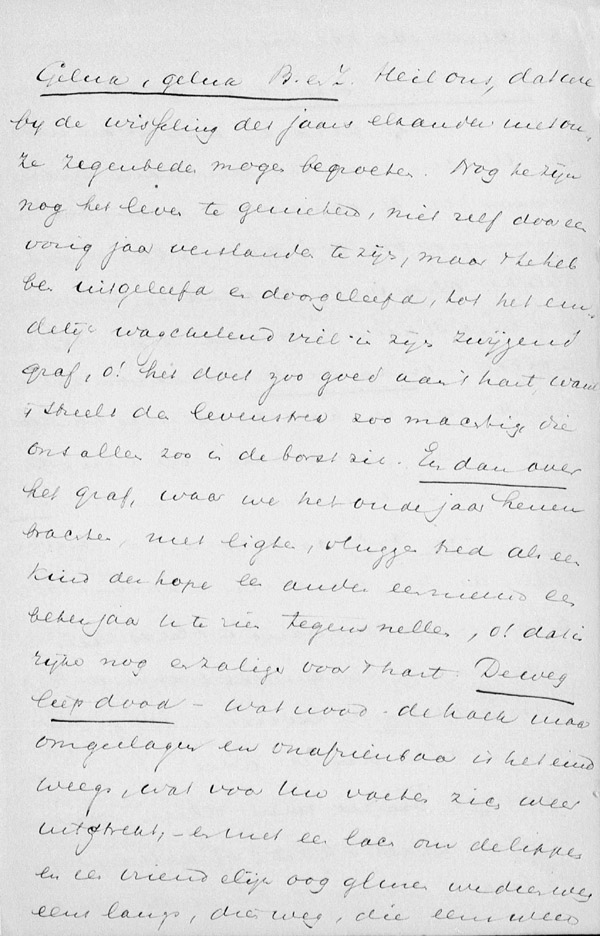 Geluk, geluk B. en Z. Heil ons, dat we
bij de wisseling des jaars elkander met on-
ze zegenbeden mogen begroeten. Nog te zijn
nog het leven te genieten, niet zelf door een
vorig jaar verslonden te zijn, maar 't te heb
ben uitgeleefd en doorgeleefd, tot het ein-
delijk waggelend viel in zijn zwijgend
graf, o! het doet zoo goed aan 't hart, want
't streelt den levenstrek zoo machtig die
ons allen zoo in de borst zit. En dan over
het graf, waar we het oude jaar henen
brachten, met ligten, vluggen tred als een
kind der hope een ander een nieuw een
beter jaar in te zien tegensnellen, o! dat is
rijker nog en zaliger voor 't hart. De weg
liep dood – wat nood – de hoek maar
omgeslagen en onafzienbaar is het eind
weegs, wat voor Uw voeten zich weer
uitstrekt, – en met een lach om de lippen
en een vriendelijk oog gluren we dien weg
eens langs, dien weg, die een weer